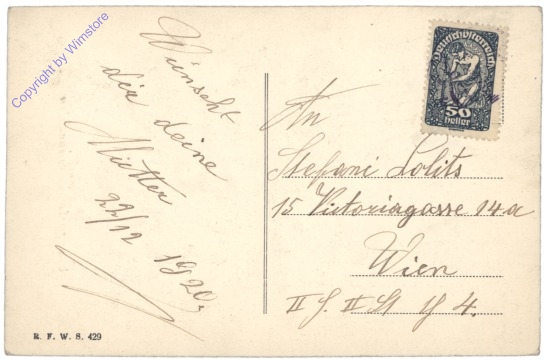 Copyright by Wimstore
Wünscht
dir deine
Mutter
22/12 1920
Deutschösterreich
50
heller
An
Stefani Lolits
15 Victoriagasse 14a
Wien
II St
4.
R. F. W. S. 429